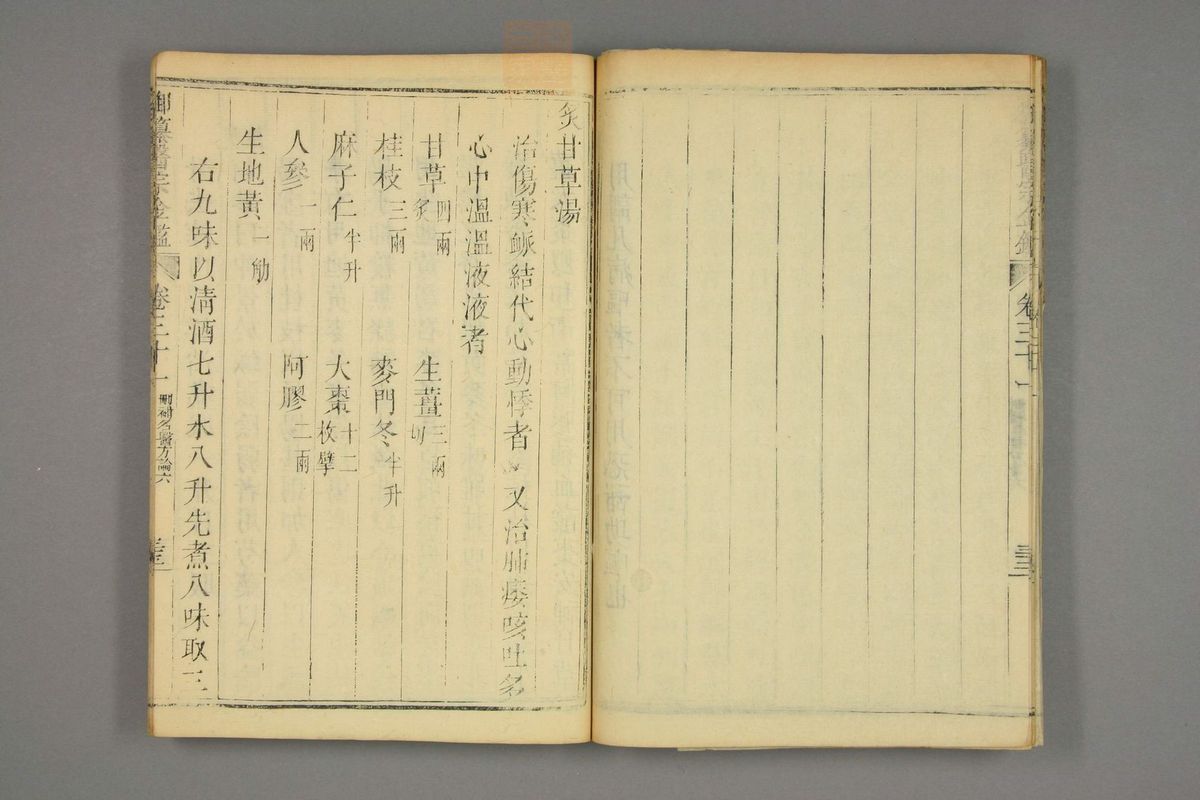 御纂醫宗金鑑
卷三十一
炙甘草湯
治傷寒脈結代心動悸者又治肺痿咳吐多
心中溫溫液液者
甘草四兩炙 生薑三兩切
桂枝三兩 麥門冬半升
麻子仁半升 大棗十二枚擘
人參一兩 阿膠二兩
生地黃一觔
右九味以清酒七升水八升先煮八味取三
御纂醫宗金鑑 卷三十一 刪補名醫方論六